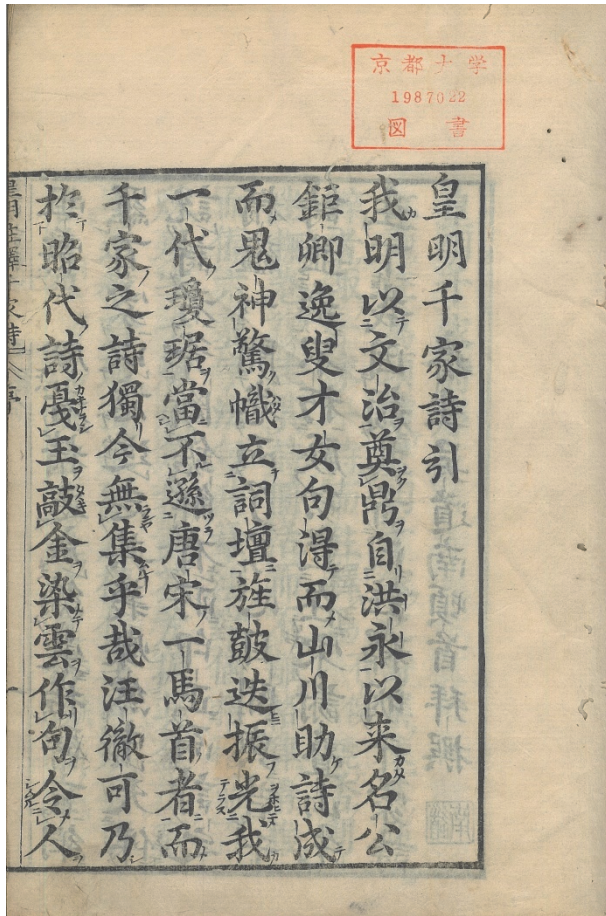 京都大学
1987022
図書
皇明千家詩引
我明以文治奠鼎自洪永以来名公
鉅卿逸叟才女句得而山川助詩成
而鬼神驚幟立詞壇旌皷迭振光我
一代瓊琚當不遜唐宋一馬首者而
千家之詩獨今無集乎哉汪徹可乃
扵昭代詩戛玉敲金染雲作句令人